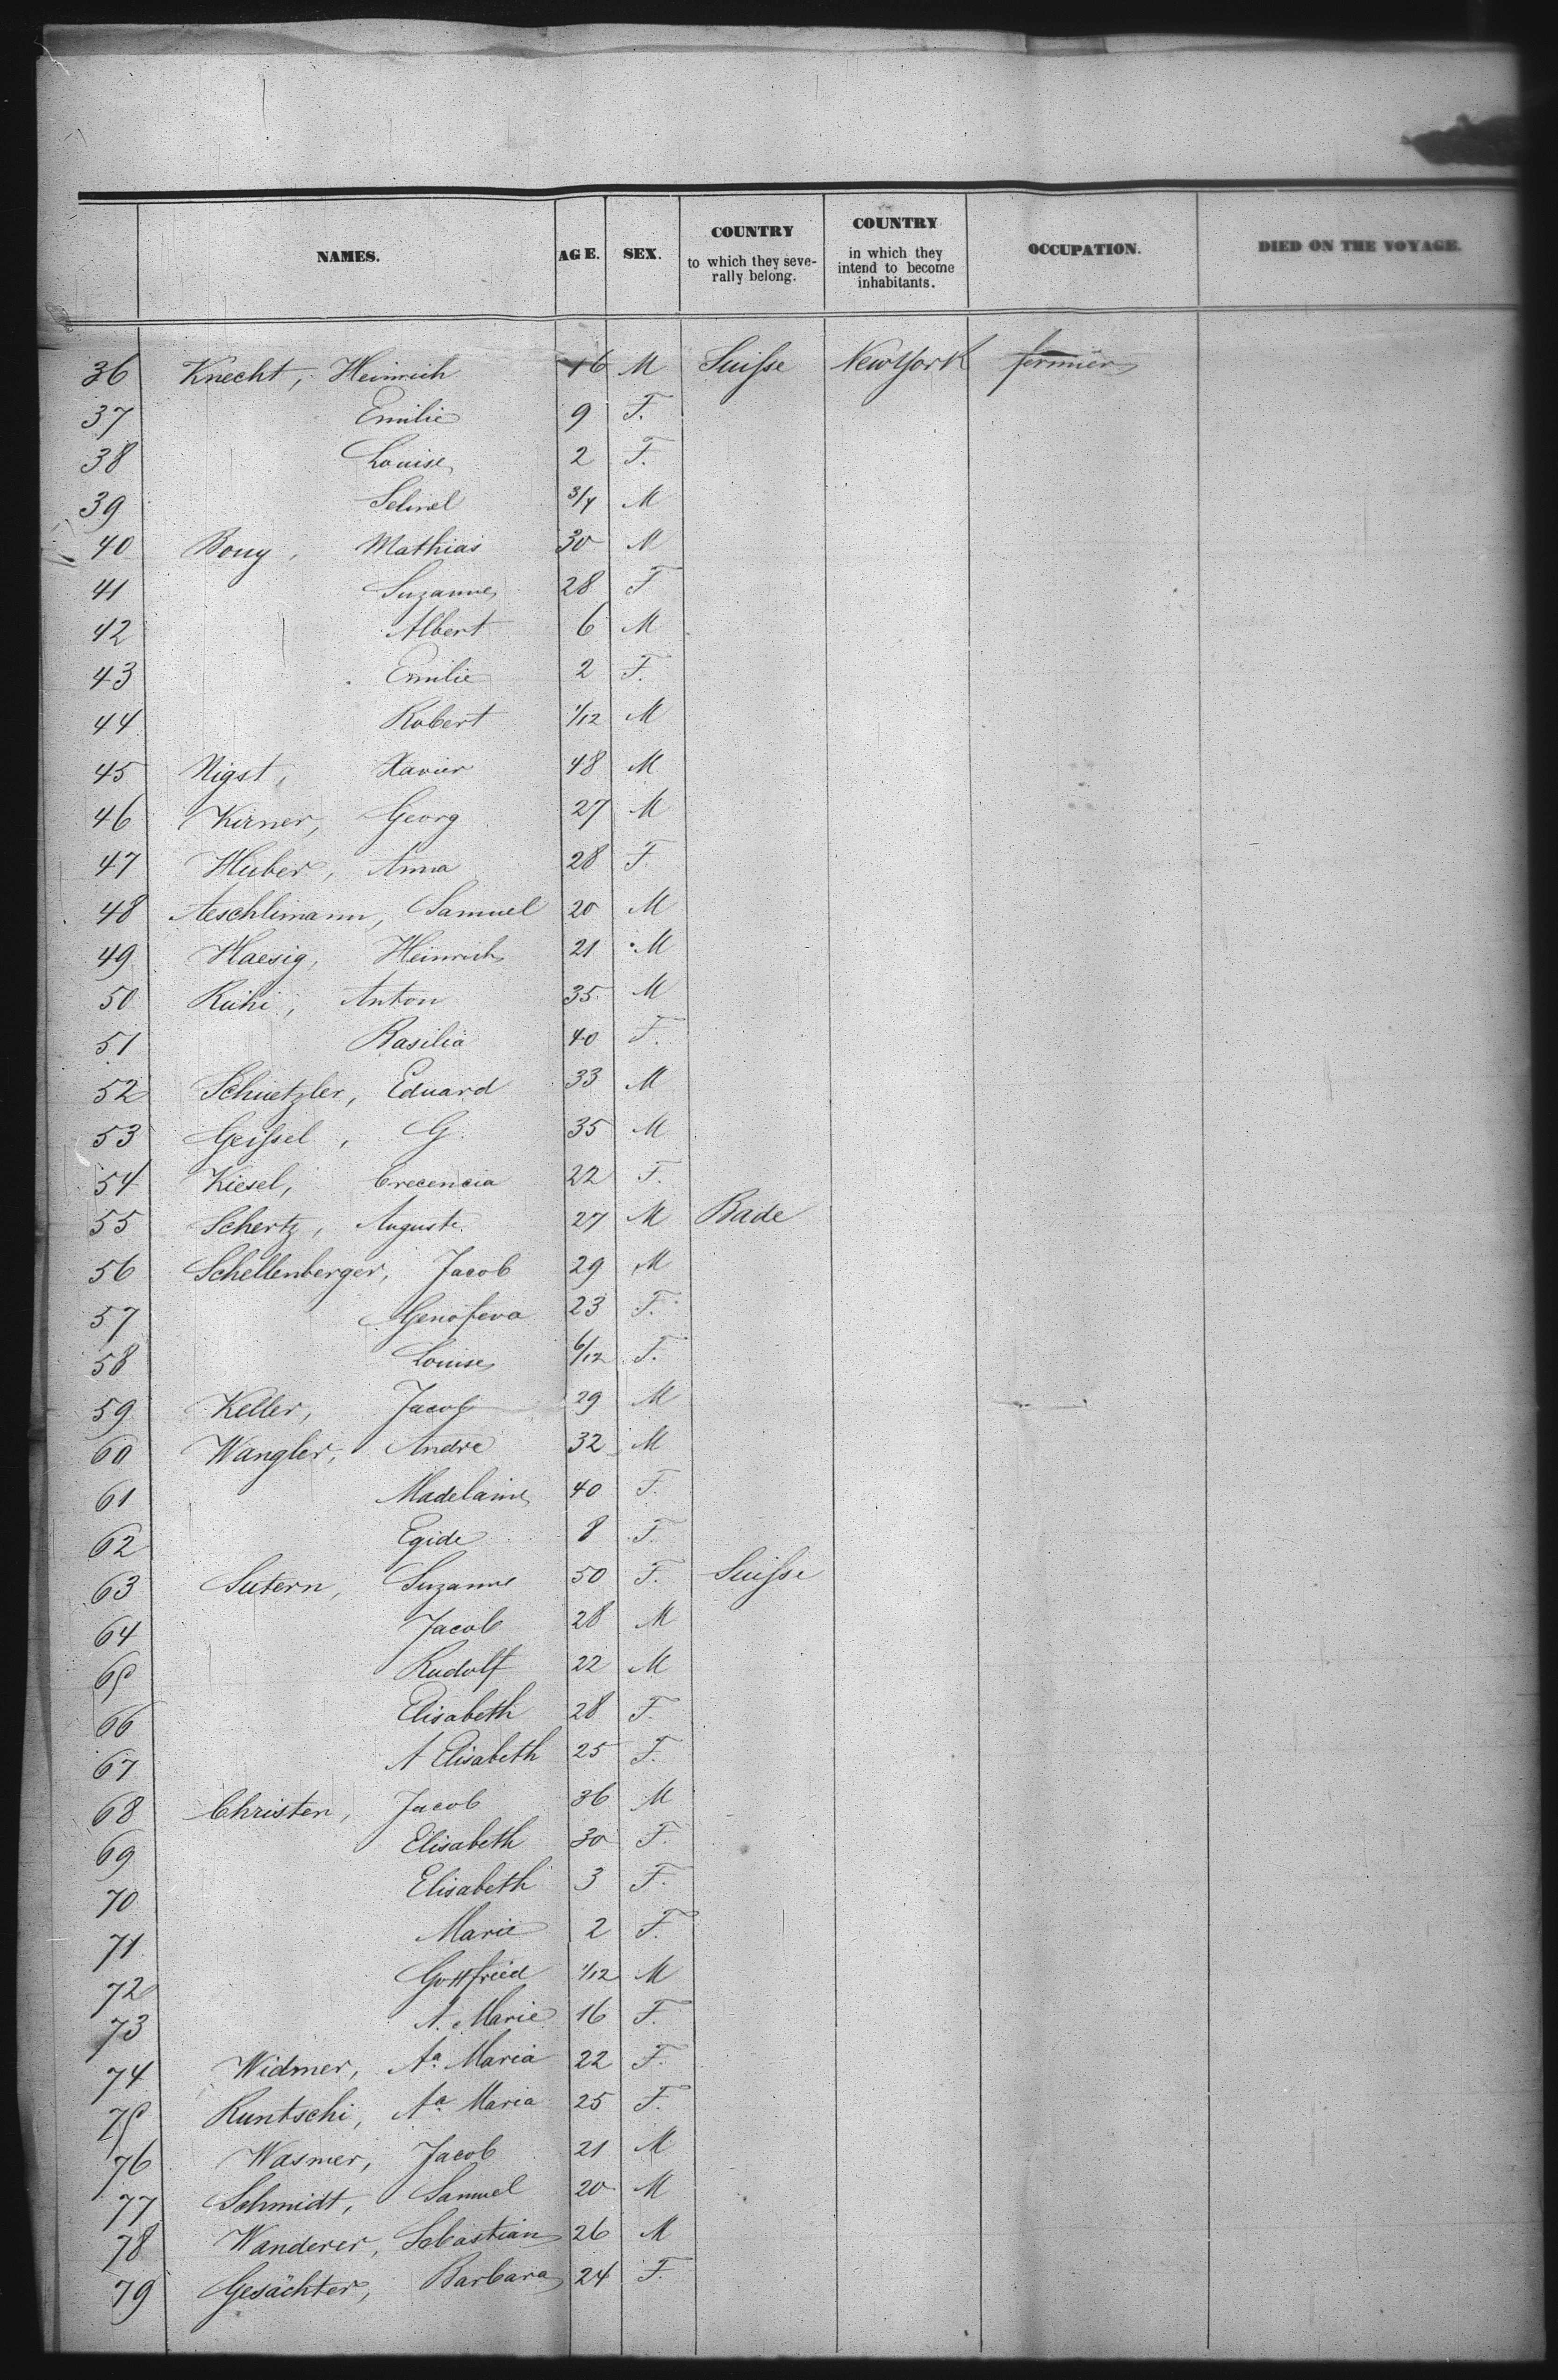 NAMES. AGE. SEX. COUNTRY to which they severally belong. COUNTRY in which they intend to become inhabitants. OCCUPATION. DIED ON THE VOYAGE.
36 Knecht, Heinrich 16 M Suisse NewYork fermier
37 Emilie 9 F.
38 Louise 2 F.
39 3/4 M
40 Bouy, Mathias 30 M
41 Suzanne 28 F
42 Albert 6 M
43 Emilie 2 F.
44 Robert 1/12 M
45 Nigst, Xavier 48 M
46 Kirner, Georg 27 M
47 Huber, Anna 28 F.
48 Aeschlimann, Samuel 20 M
49 Haesig, Heinrich 21 M
50 Rühi, Anton 35 M
51 Basilia 40 F.
52 Schuetzler, Eduard 33 M
53 Geissel, G 35 M
54 Kiesel, Crecencia 22 F.
55 Schertz, Auguste 27 M Bade
56 Schellenberger, Jacob 29 M
57 Genofeva 23 F.
58 Louise 6/12 F.
59 Keller, Jacob 29 M
60 Wangler, Andre 32 M
61 Madelaine 40 F.
62 Egide 8 F.
63 Sutern, Suzanne 50 F. Suisse
64 Jacob 28 M
65 Rudolf 22 M
66 Elisabeth 28 F.
67 A Elisabeth 25 F.
68 Christen, Jacob 36 M
69 Elisabeth 30 F.
70 Elisabeth 3 F.
71 Marie 2 F.
72 Gottfried 1/12 M
73 A. Marie 16 F.
74 Widmer, Aa. Maria 22 F.
75 Runtschi, Aa. Maria 25 F.
76 Wasmer, Jacob 21 M
77 Schmidt, Samuel 20 M
78 Wanderer, Sebastian 26 M
79 Gesächter, Barbara 24 F.